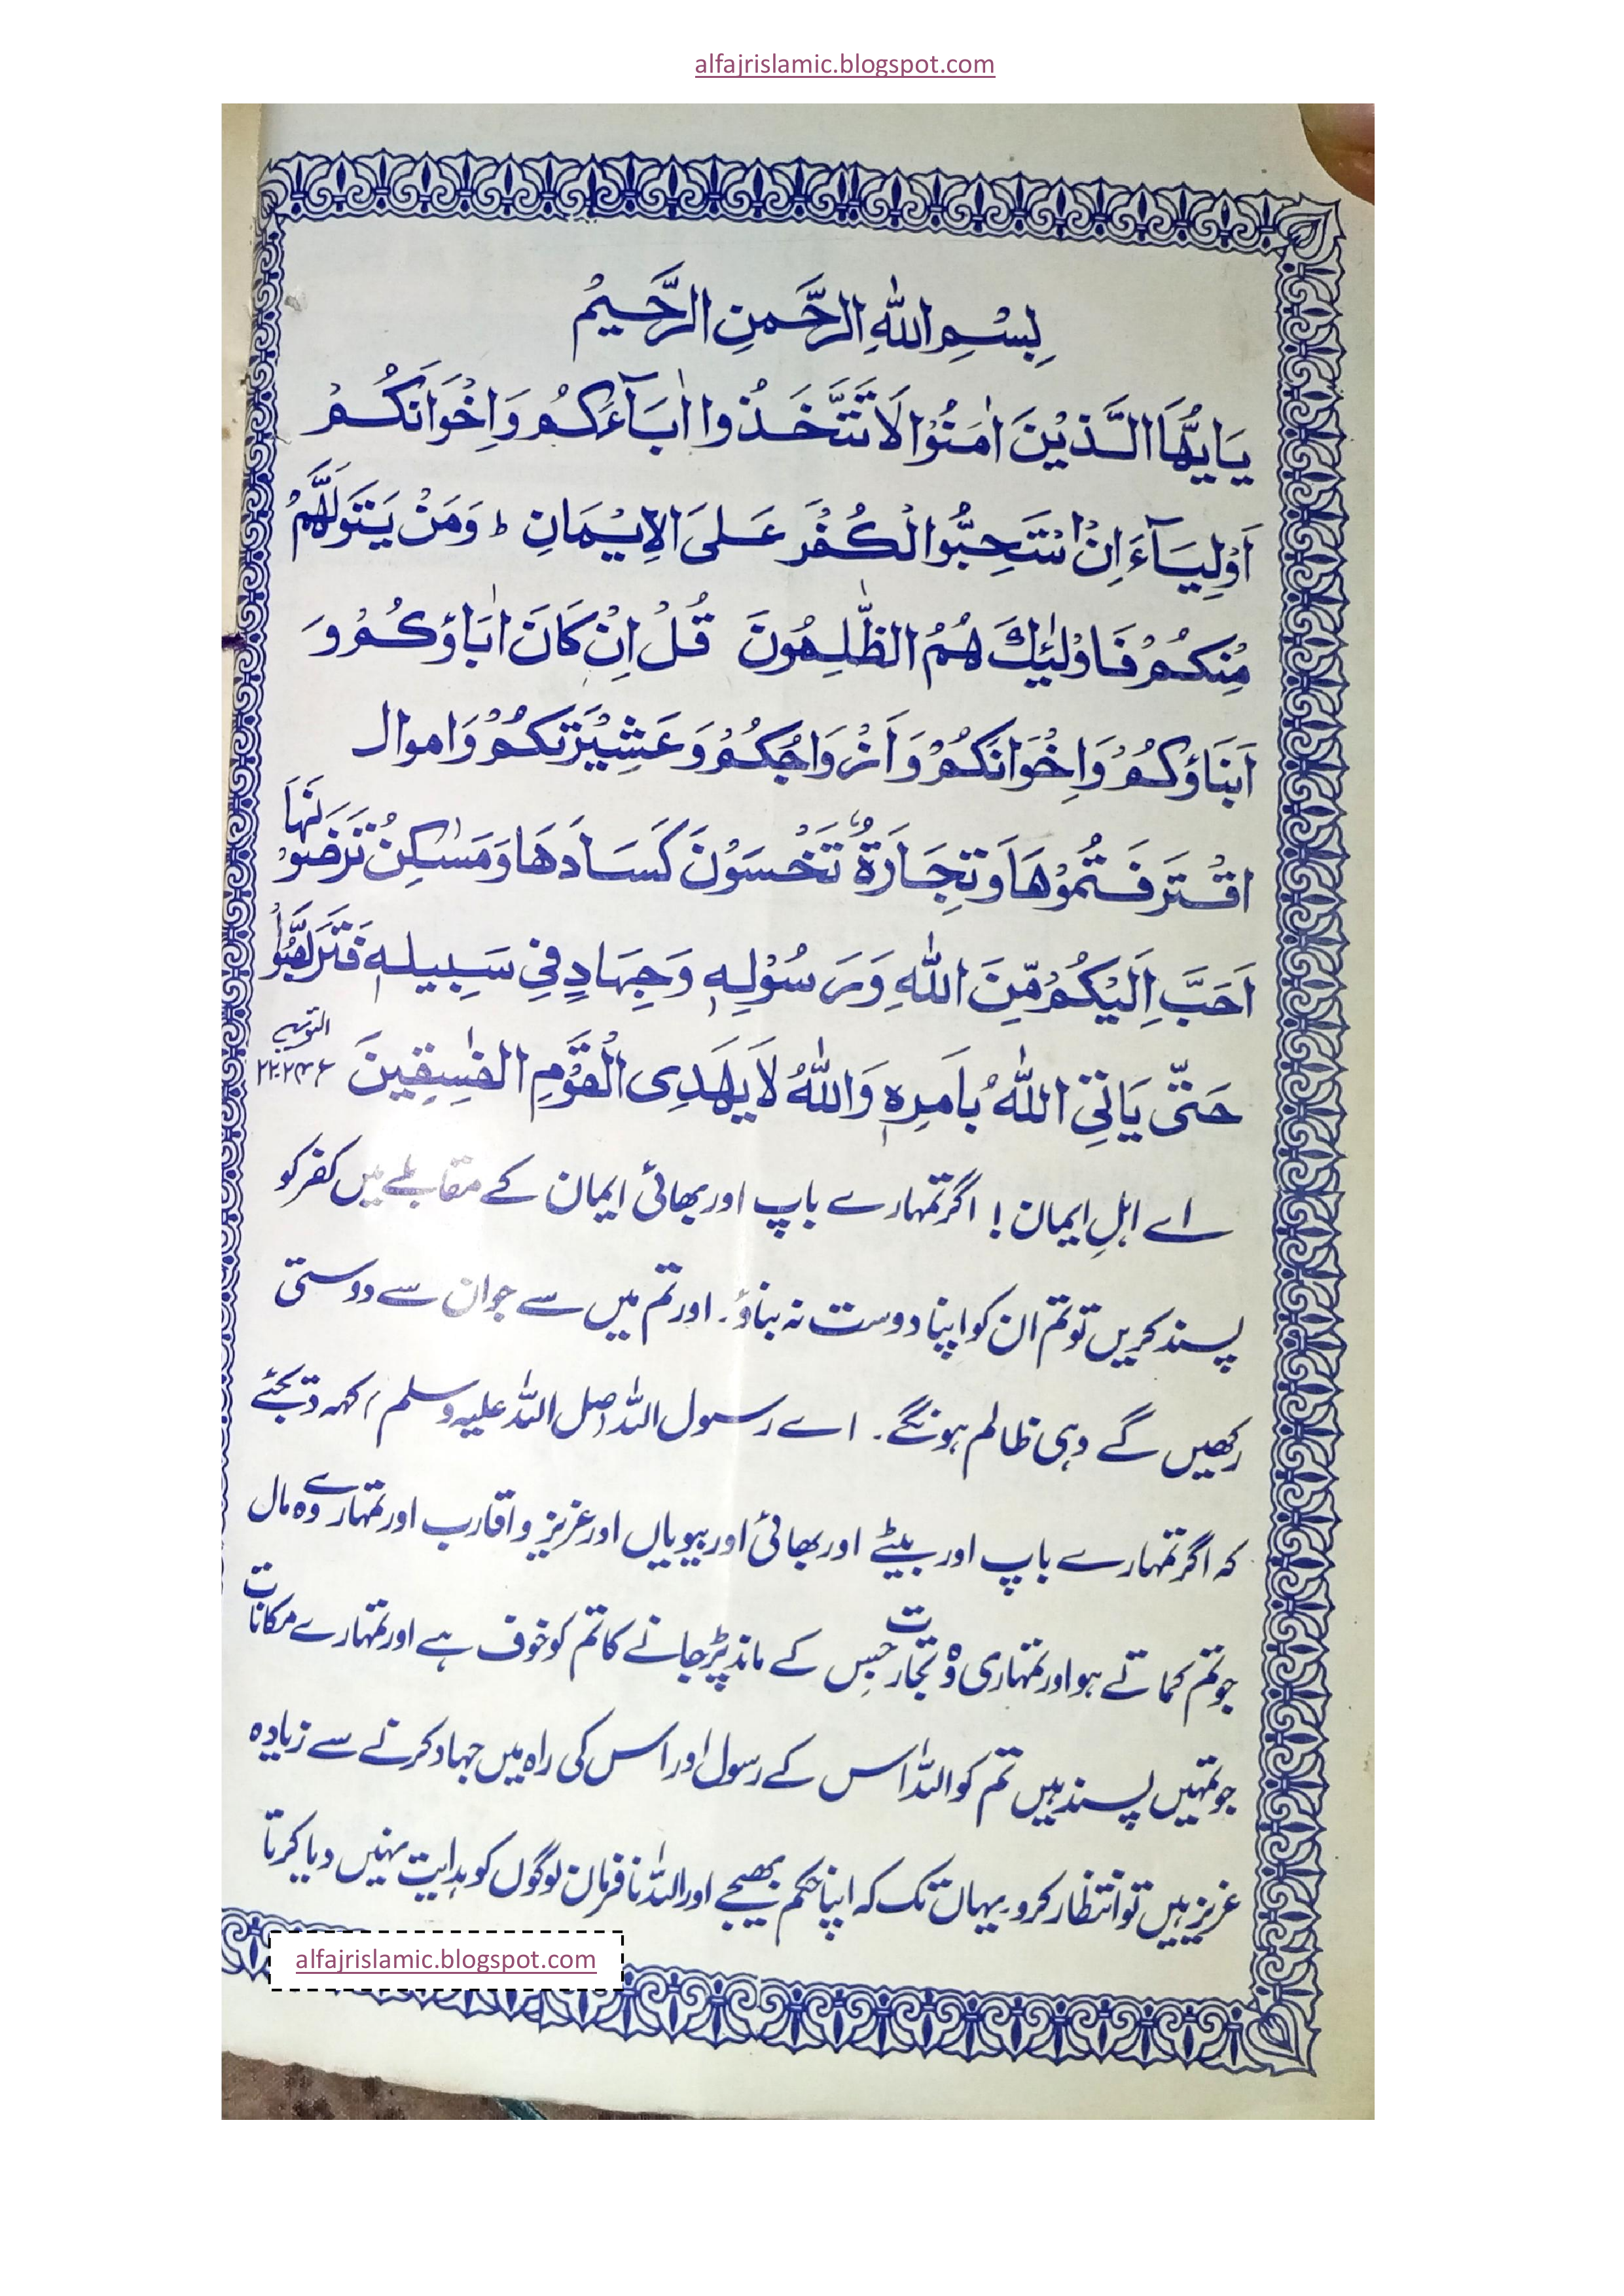 alfajrislamic.blogspot.com
بِسْمِ اللهِ الرَّحْمنِ الرَّحِيمْ
يَايُّهَا الَّذِيْنَ اٰمَنُوْا لَا تَتَّخَذُوا اٰبَآءَكُمْ وَاِخْوَانَكُمْ
اَوْلِيَآءَ اِنْ اسْتَحِبُّوا الْكُفْرَ عَلىَ الِايْمَانِ ط وَمَنْ يَتَوَلَّهُمْ
مِنْكُمْ فَاوْلٰئِكَ هُمُ الظّٰلِمُونَ قُلْ اِنْ كَانَ اٰبَاؤكُمْ وَ
اَبْنَاؤكُمْ وَاِخْوَانَكُمْ وَاَزْوَاجُكُمْ وَعَشِيْرَتَكُمْ وَاموال
اقْتَرَفَتُمُوْهَا وَتِجَارَةُ تَخْسَوْنَ كَسَادَهَا وَمَسٰكِنُ تَرْضَوْنَهَا
اَحَبَّ اِلَيْكُمْ مِّنَ اللهِ وَرَسُوْلِهٖ وَجِهَادٍ فِي سَبِيلهٖ فَتَرَبَّصُوْا
حَتّٰى يَاتِيَ اللهُ بِاَمرِهٖ وَاللهُ لَا يَهَدِى الْقَوْمِ الفٰسِقِينَ التوبہ
اے اہلِ ایمان! اگر تمہارے باپ اور بھائی ایمان کے مقابلے میں کفر کو
پسند کریں تو تم ان کو اپنا دوست نہ بناؤ۔ اور تم میں سے جو ان سے دوستی
رکھیں گے وہی ظالم ہونگے۔ اے رسول اللہ صل اللہ علیہ وسلم کہہ دیجئے
کہ اگر تمہارے باپ اور بیٹے اور بھائی اور بیویاں اور عزیز و اقارب اور تمہارے وہ مال
جو تم کماتے ہو اور تمہاری وہ تجارت جس کے ماند پڑ جانے کا تم کو خوف ہے اور تمہارے مکانات
جو تمہیں پسند ہیں تم کو اللہ اس کے رسول اور اس کی راہ میں جہاد کرنے سے زیادہ
عزیز ہیں تو انتظار کرو۔ یہاں تک کہ اپنا حکم بھیجے اور اللہ نافرمان لوگوں کو ہدایت نہیں دیا کرتا
alfajrislamic.blogspot.com